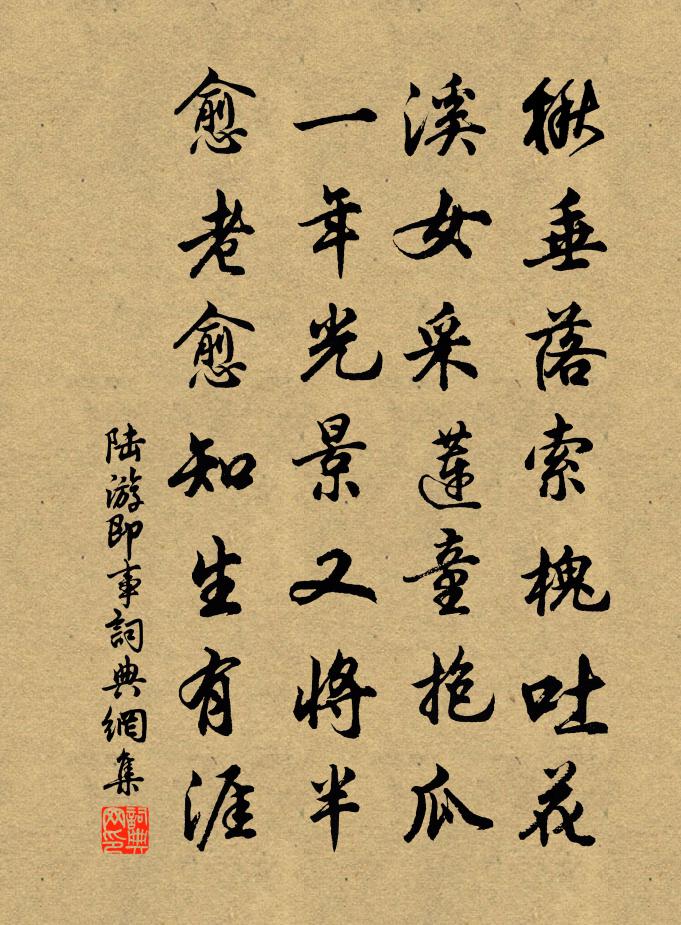 楸垂落索槐吐花
溪女采蓮童抱瓜
一年光景又將半
愈老愈知生有涯
陆游即事詞典網集
詞典網印